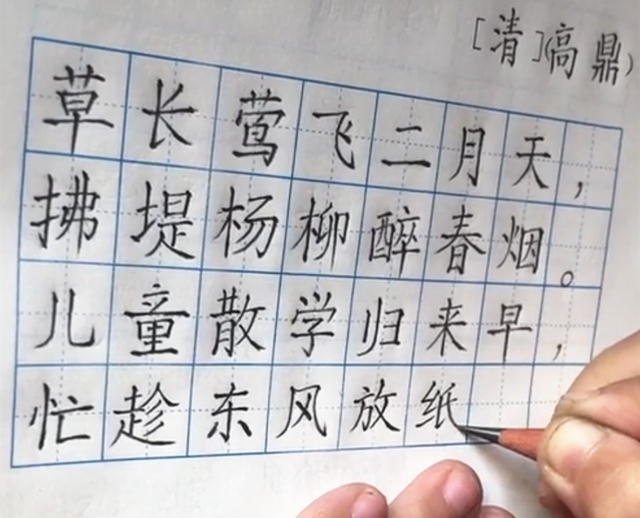 [清](高鼎)
草长莺飞二月天，
拂堤杨柳醉春烟。
儿童散学归来早，
忙趁东风放纸